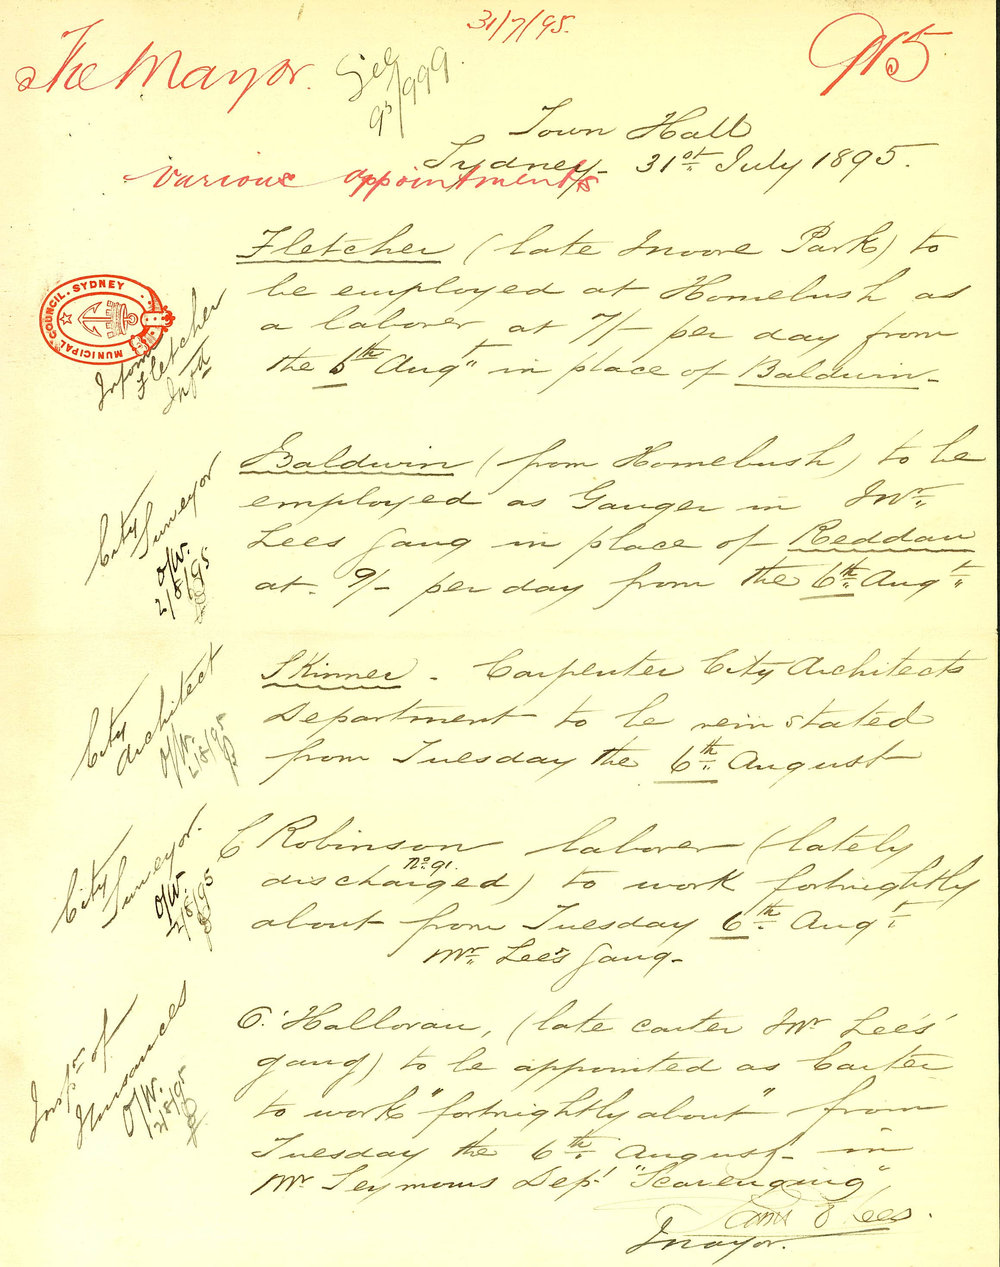 31/7/95.
The Mayor.
See
95/999.
915
Town Hall
Sydney 31st July 1895.
Various appointments
Fletcher (late Moore Park) to
be employed at Homebush as
a laborer at 7/- per day from
the 6th Augt in place of Baldwin.
MUNICIPAL COUNCIL. SYDNEY
Inform
Fletcher
Infd
Baldwin (from Homebush) to be
employed as Ganger in Mr
Lees Gang in place of Reddan
at 9/- per day from the 6th Augt
City
Surveyor
O/W.
2/8/95
Skinner - Carpenter City Architects
Department to be reinstated
from Tuesday the 6th August
City
Architect
O/W.
2/8/95
C Robinson laborer (lately
discharged No 91.) to work fortnightly
about from Tuesday 6th Augt
Mr Lee's Gang -
City
Surveyor.
O/W.
2/8/95
O'Halloran, (late carter Mr Lee's
gang) to be appointed as Carter
to work "fortnightly about" from
Tuesday the 6th August - in
Mr Seymours Dept "Scavenging"
Inspr of
Nuisances
O/W.
2/8/95
Lees.
Mayor.